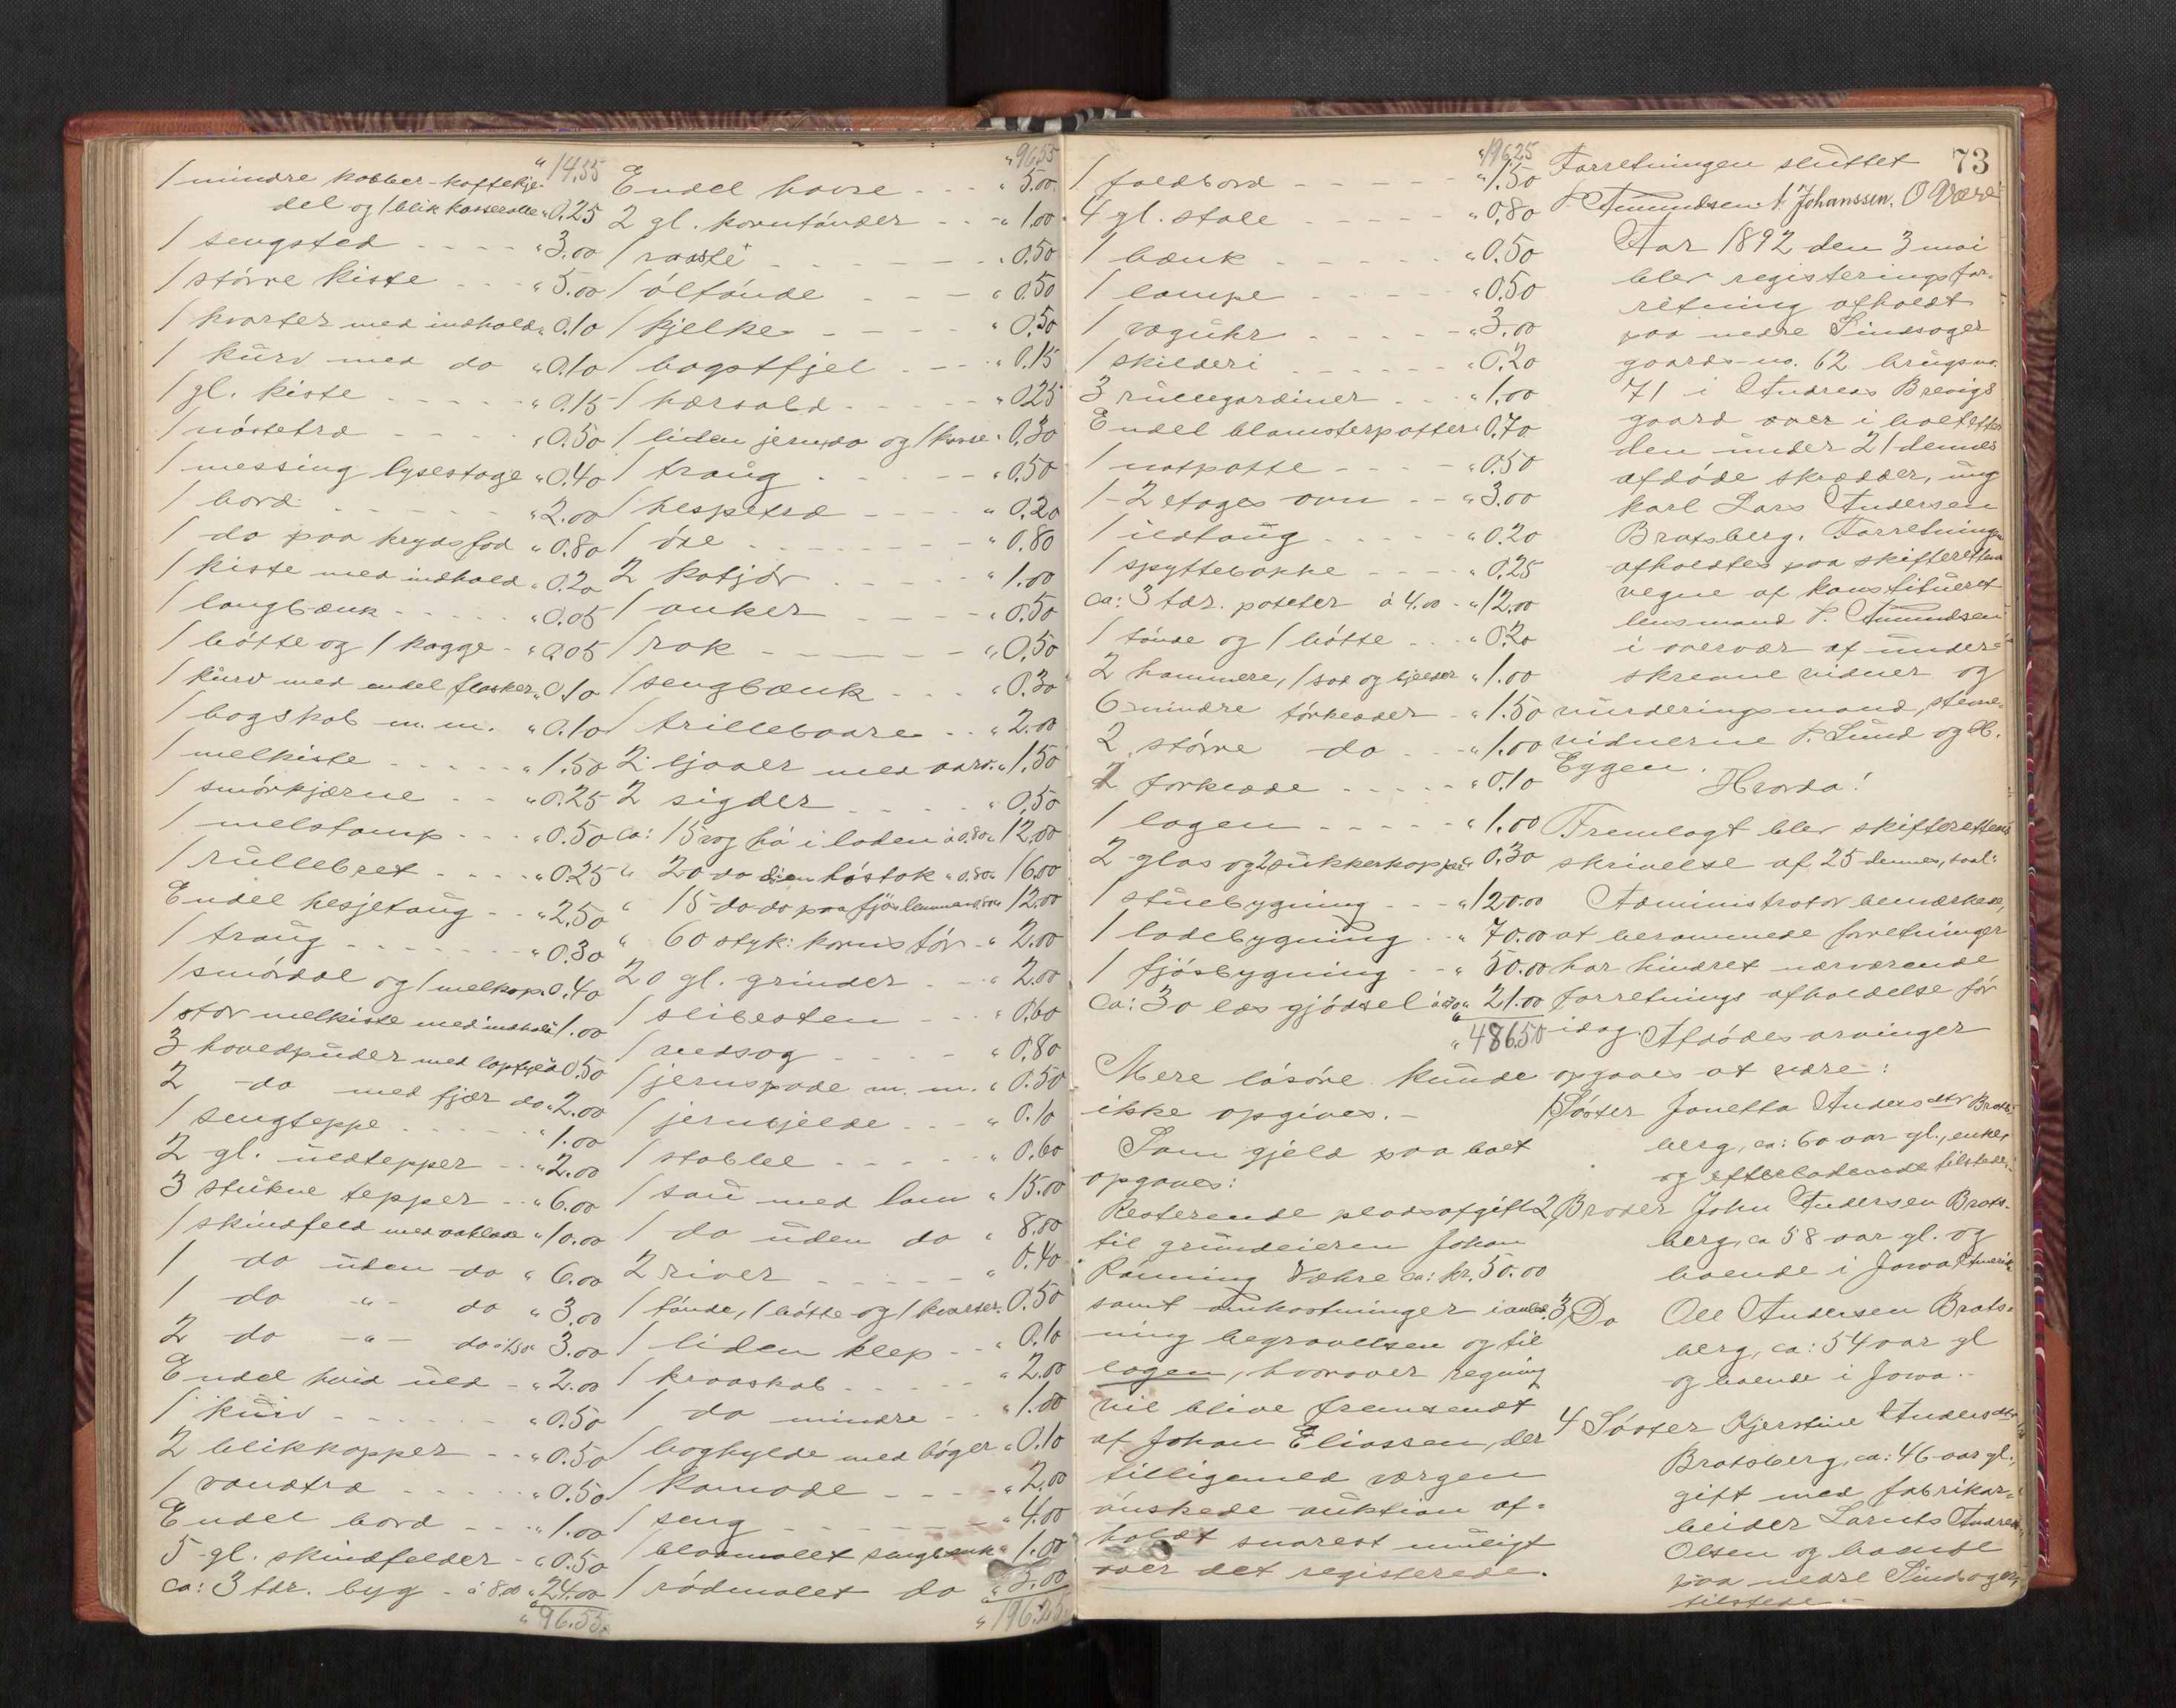 " 14.55
1 mindre kobber-kaffekje-
del og 1 blik kasserolle " 0.25
1 sengsted - - - - " 3.00
1 större kiste - - - " 5.00
1 kvarter med indhold " 0.10
1 kurv med do " 0.10
1 gl. kiste - - - - - " 0.15
1 nöstetræ - - - - " 0.50
1 messing lysestage " 0.40
1 bord - - - - - - " 2.00
1 do paa krydsfod " 0.80
1 kiste med indhold " 0.20
1 langbænk - - - - - " 0.05
1 bötte og 1 kagge - " 0.05
1 kurv med endel flasker " 0.10
1 bogskab m. m. " 0.10
1 melkiste - - - - - " 1.50
1 smörkjærne - - " 0.25
1 melstamp - - - " 0.50
1 rullebret - - - - " 0.25
Endel hesjetaug - - " 2.50
1 traug - - - - - - - " 0.30
1 smördal og 1 melkop " 0.40
1 stor melkiste med indhold " 1.00
3 hovedpuder med 0.50
2 do med fjær do " 2.00
1 sengteppe - - - - - " 1.00
2 gl. uldtepper - - " 2.00
3 stukne tepper - - " 6.00
1 skindfeld med " 10.00
1 do uden do " 6.00
1 do - " - do " 3.00
2 do - " - do à 1.50 " 3.00
Endel hvid uld - " 2.00
1 kurv - - - - - - " 0.50
2 blikkopper - - - " 0.50
1 vandtræ - - - - - " 0.50
Endel bord - - - " 1.00
5 gl. skindfelder - " 0.50
ca: 3 tdr. byg - à 8.00 " 24.00
" 96.55
" 96.55
Endel havre - - - " 5.00
2 gl. korntönder - - " 1.00
1 - - - - - - - " 0.50
1 öltönde - - - " 0.50
1 kjelke - - - - - " 0.50
1 bagstfjel - - - " 0.15
1 hærsold - - - - " 0.25
1 liden jern og 1 " 0.30
1 traug - - - - - " 0.50
1 hespetræ - - - - " 0.20
1 öxe - - - - - - - - " 0.80
2 - - - - - " 1.00
1 anker - - - - " 0.50
1 rok - - - - - - " 0.50
1 sengbænk - - - " 0.30
1 trillebaare - - " 2.00
2 ljaaer med " 1.50
2 sigder - - - - " 0.50
ca: 15 vog hö i laden à 0.80 " 12.00
" 20 do i en höstak " 0.80 " 16.00
" 15 do do paa " 12.00
" 60 styk: " 2.00
20 gl. grinder - - " 2.00
1 slibesten - - - " 0.60
1 vedsag - - - - - " 0.80
1 jernspade m. m. " 0.50
1 jernbjelde - - - " 0.10
1 stabbel - - - - - " 0.60
1 sau med lam " 15.00
1 do uden do " 8.00
2 river - - - - - " 0.40
1 tönde, 1 bötte og 1 kvarter " 0.50
1 liden klep - - " 0.10
1 kraaskab - - - - - " 2.00
1 do mindre - - " 1.00
1 boghylde med böger " 0.10
1 komode - - - - " 2.00
1 seng - - - - - - - " 4.00
1 blaamalet sengbænk " 1.00
1 rödmalet do " 3.00
" 196.25
" 196.25
1 foldbord - - - - - " 1.50
4 gl. stole - - - - - " 0.80
1 bænk - - - - - - " 0.50
1 lampe - - - - - " 0.50
1 væguhr - - - - - " 3.00
1 skilderi - - - - - - " 0.20
3 rullegardiner - - - " 1.00
Endel blomsterpotter " 0.70
1 natpotte - - - - " 0.50
1 - 2 etages ovn - - " 3.00
1 ildtang - - - - - " 0.20
1 spyttebakke - - - - " 0.25
ca: 3 tdr. poteter à 4.00 - " 12.00
1 tönde og 1 bötte - - - " 0.20
2 hammere, 1 sag og bjelder " 1.00
6 mindre törklæder - " 1.50
2 större do - - " 1.00
2 forklæde - - - - - " 0.10
1 lagen - - - - - " 1.00
2 glas og 2 sukkerkopper " 0.30
1 stuebygning - - - " 120.00
1 ladebygning - - " 70.00
1 fjösbygning - - " 50.00
ca: 30 læs gjödsel à 0.70 " 21.00
" 486.50
Mere lösöre kunde
ikke opgives. -
Som gjeld paa boet
opgaves:
Resterende pladsafgift
til grundeieren Johan
Rönning Væhre ca: kr. 50.00
samt omkostninger i anled-
ning begravelsen og til
lægen, hvorover regning
vil blive fremsendt
af Johan Eliassen, der
tilligemed værgen
önskede auktion af-
holdt snarest muligt
over det registerede.
73
Forretningen sluttet
P. Amundsen. A Johanssen. O Være
Aar 1892 den 3 mai
blev registeringsfor-
retning afholdt
paa nedre Sindsager
gaards-no. 62 brugs-no.
71 i Andreas Brevigs
gaard over i boet efter
den under 21 dennes
afdöde skrædder, ung
karl Lars Andersen
Bratsberg. Forretningen
afholdtes paa skifterettens
vegne af konstitueret
lensmand P. Amundsen
i overvær af under-
skrevne vidner og
vurderingsmænd, stevne-
vidnerne P. Lund og
Eggen.
Hvorda!
Fremlagt blev skifterettens
skrivelse af 25 dennes, saal:
Administrator bemærkede,
at berammede forretninger
har hindret nærværende
forretnings afholdelse för
idag. Afdödes arvinger
opgaves at være:
1, Söster Janetta Andersdtr Brats-
berg, ca: 60 aar gl., enke,
og efterladende tilstede.
2, Broder John Andersen Brats-
berg, ca 58 aar gl. og
boende i Jowa Amerik
3, Do Ole Andersen Brats-
berg, ca: 54 aar gl
og boende i Jowa. -
4 Söster Kjerstine Andersdtr
Bratsberg, ca: 46 aar gl.,
gift med fabrikar-
beider Larents Andreas
Olsen og boende
paa nedre Sindsager,
tilstede. -